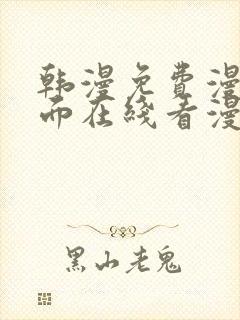 韩漫免費漫
而在线看漫
黑山老鬼